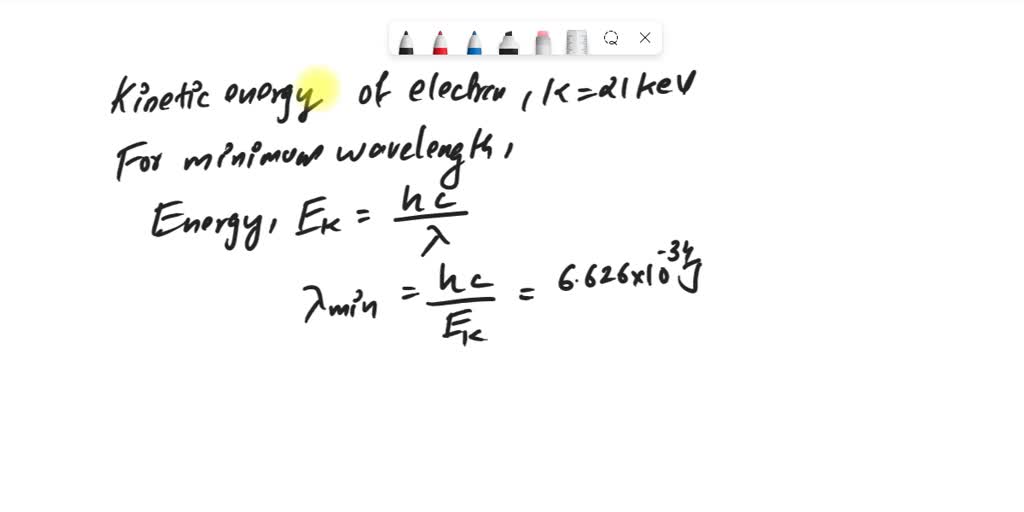 Kinetic energy of electron, K = 21 keV
For minimum wavelength,
Energy, E_K = hc/λ
λ_min = hc/E_K = 6.626×10^-34 J